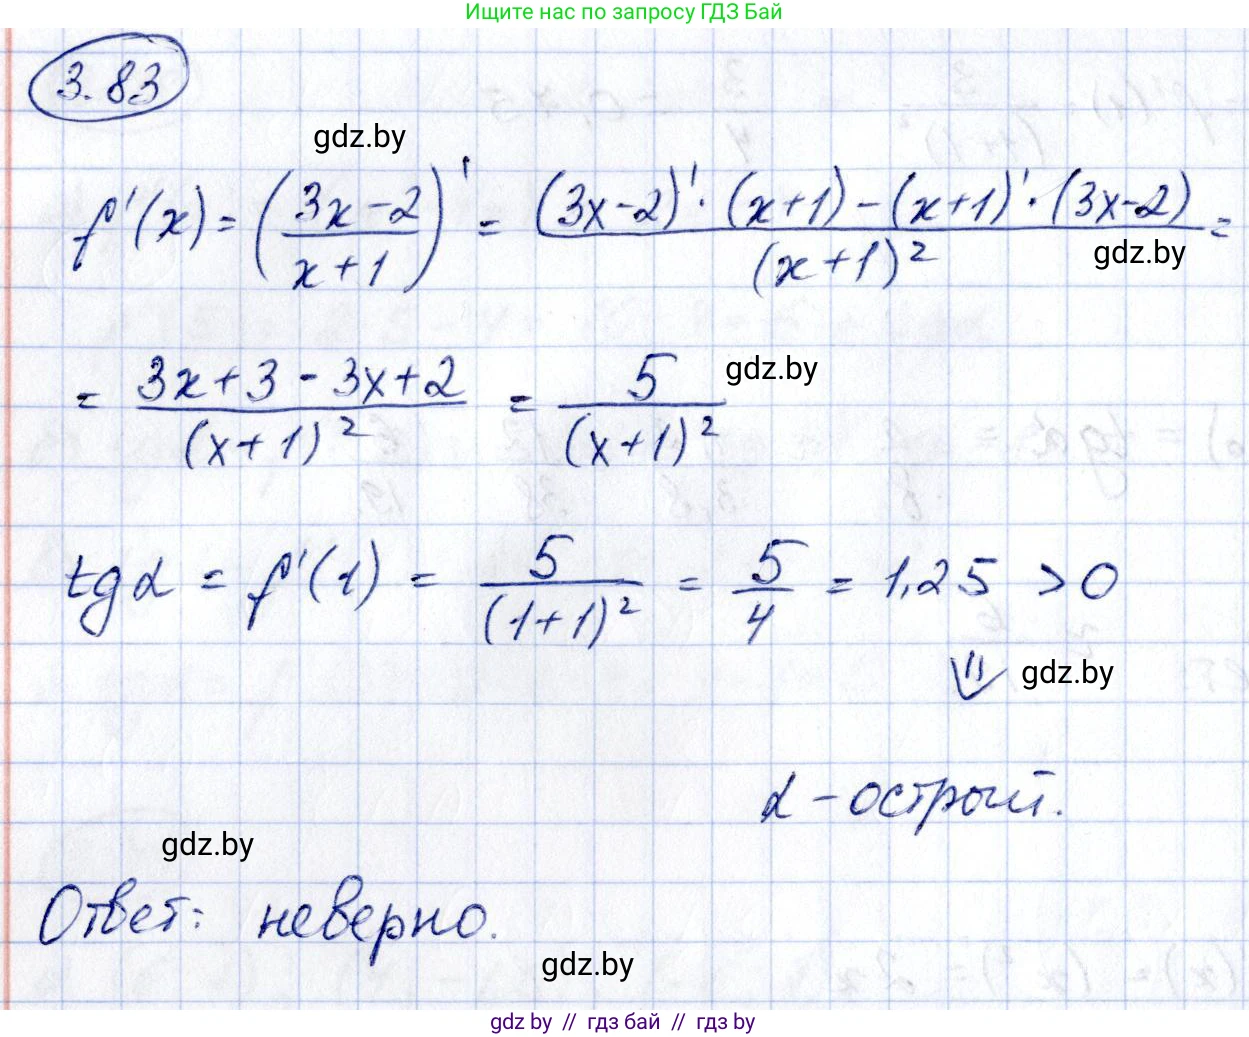 Ищите нас по запросу ГДЗ Бай
3.83
gdz.by
f'(x) = ((3x-2)/(x+1))' = ((3x-2)'·(x+1)-(x+1)'·(3x-2))/(x+1)² =
gdz.by
= (3x+3-3x+2)/(x+1)² = 5/(x+1)²
gdz.by
tgα = f'(1) = 5/(1+1)² = 5/4 = 1,25 > 0
⇓
gdz.by
α - острый.
gdz.by
Ответ: неверно.
gdz.by
gdz by // гдз бай // гдз by